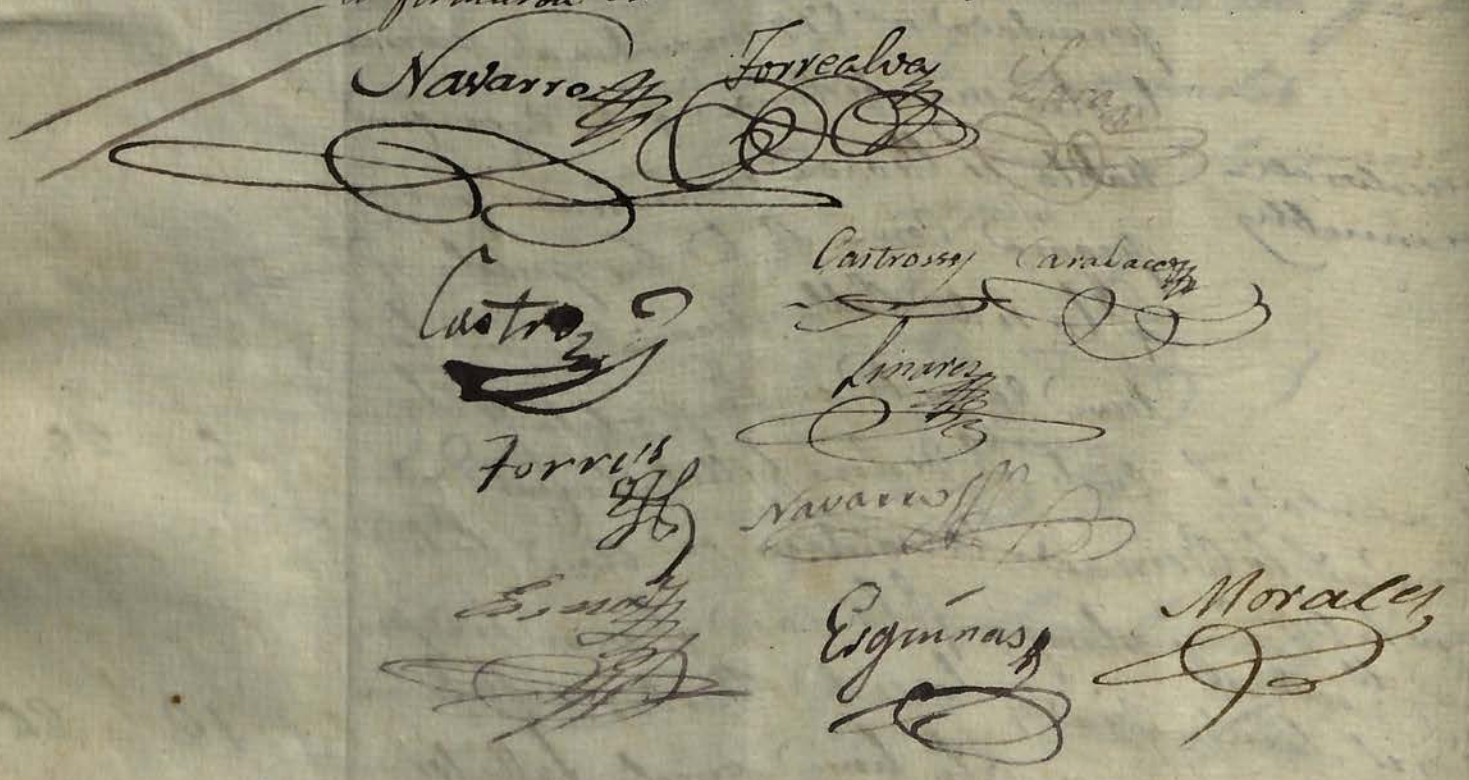 Navarro Torrealva
Castro Castross Caravaca
Linares
Torres
Navarro
Esguinas Morales